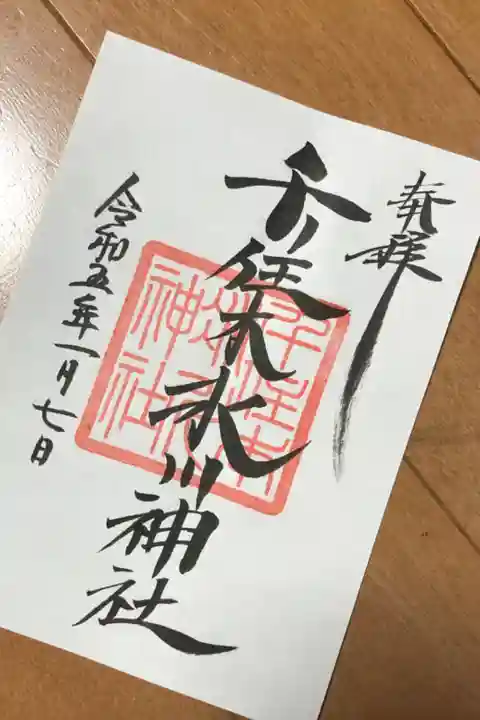 奉拝
千住本氷川神社
令和五年一月七日
千住本
氷川
神社